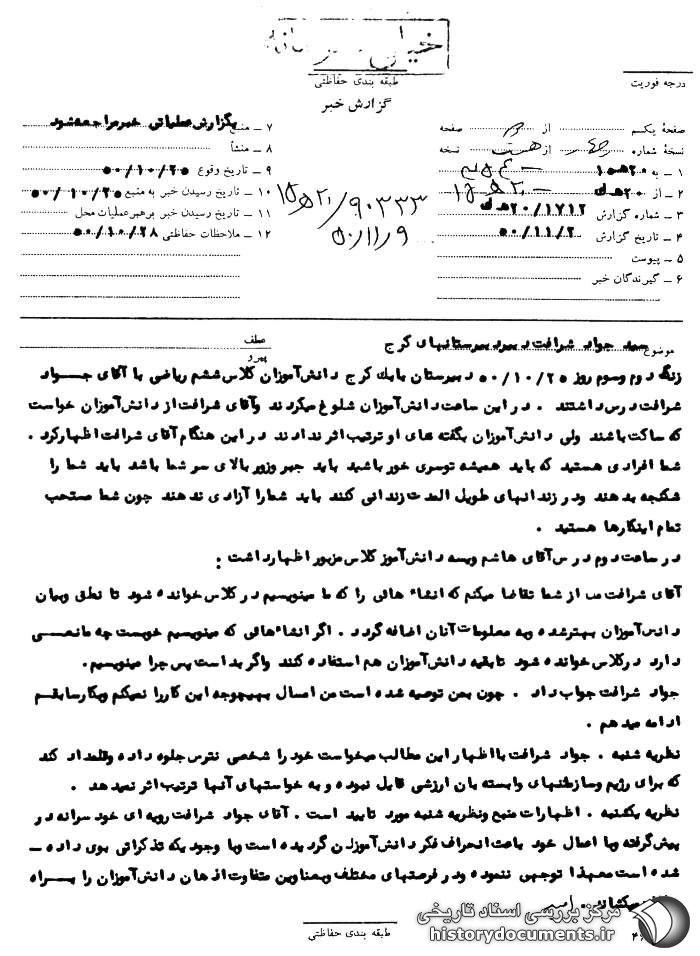 خیلی محرمانه
طبقه بندی حفاظتی
گزارش خبر
درجه فوریت
صفحهٔ یکم از دو صفحه
نسخهٔ شماره از هشت نسخه
۱ ـ به ۲۰ ه‍ ۱۵
۲ ـ از ۲۰ ه‍ ک
۳ ـ شماره گزارش ۲۰/۱۷۱۲ ه‍ ک
۴ ـ تاریخ گزارش ۵۰/۱۱/۲
۵ ـ پیوست
۶ ـ گیرندگان خبر
۷ ـ منبع بگزارش عملیاتی خبر مراجعه شود
۸ ـ منشأ
۹ ـ تاریخ وقوع ۵۰/۱۰/۲۵
۱۰ ـ تاریخ رسیدن خبر به منبع ۵۰/۱۰/۲۵
۱۱ ـ تاریخ رسیدن خبر برهبر عملیات محل
۱۲ ـ ملاحظات حفاظتی ۵۰/۱۰/۲۸
۹۰۳۳۳
۵۰/۱۱/۹
موضوع سید جواد شرافت دبیر دبیرستانهای کرج
عطف
پیرو
زنگ دوم و سوم روز ۵۰/۱۰/۲۵ دبیرستان بابک کرج دانش‌آموزان کلاس ششم ریاضی با آقای جواد
شرافت درس داشتند . در این ساعت دانش‌آموزان شلوغ میکردند وآقای شرافت از دانش‌آموزان خواست
که ساکت باشند ولی دانش‌آموزان بگفته های او ترتیب اثر ندادند در این هنگام آقای شرافت اظهار کرد .
شما افرادی هستید که باید همیشه توسری خور باشید باید جبر وزور بالای سر شما باشد باید شما را
شکنجه بدهند ودر زندانهای طویل المدت زندانی کنند باید شما را آزادی ندهند چون شما مستحب
تمام اینکارها هستید .
در ساعت دوم درس آقای هاشم ویسه دانش‌آموز کلاس مزبور اظهار داشت :
آقای شرافت من از شما تقاضا میکنم که انشاء هائی را که ما مینویسیم در کلاس خوانده شود تا نطق وبیان
دانش‌آموزان بهتر شده وبه معلومات آنان اضافه گردد . اگر انشاءهائی که مینویسیم خوبست چه مانعی
دارد در کلاس خوانده شود تا بقیه دانش‌آموزان هم استفاده کنند واگر بد است پس چرا مینویسیم.
جواد شرافت جواب داد . چون بمن توصیه شده است من امسال بهیچوجه این کار را نمیکنم وبکار سابقم
ادامه میدهم .
نظریه شنبه . جواد شرافت با اظهار این مطالب میخواست خود را شخصی نترس جلوه داده وقلمداد کند
که برای رژیم وسازمانهای وابسته بان ارزشی قایل نبوده و به خواستهای آنها ترتیب اثر نمیدهد .
نظریه یکشنبه . اظهارات منبع ونظریه شنبه مورد تایید است . آقای جواد شرافت رویه ای خودسرانه در
پیش گرفته وبا اعمال خود باعث انحراف فکر دانش‌آموزان گردیده است وبا وجودیکه تذکراتی بوی داده ـ
شده است معهذا توجهی ننموده ودر فرصتهای مختلف وبعناوین متفاوت اذهان دانش‌آموزان را براه
میکشاند .
طبقه بندی حفاظتی
مرکز بررسی اسناد تاریخی
historydocuments.ir